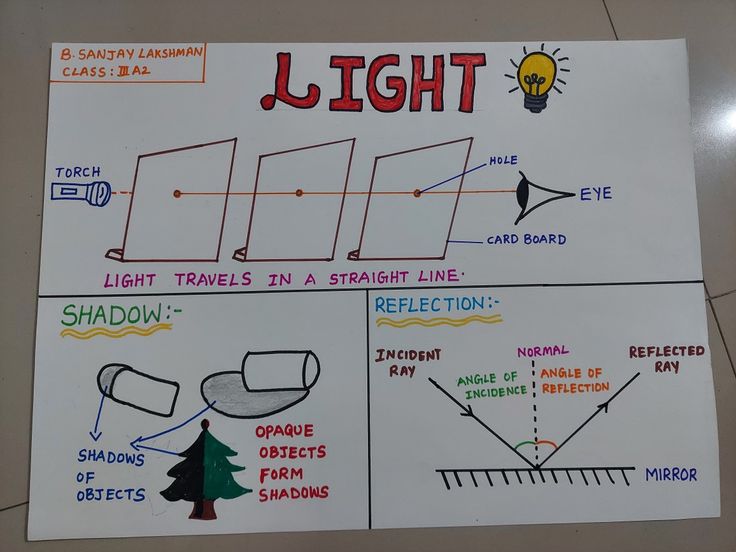 B. SANJAY LAKSHMAN
CLASS : III A2
LIGHT
TORCH
HOLE
EYE
CARD BOARD
LIGHT TRAVELS IN A STRAIGHT LINE.
SHADOW:-
SHADOWS
OF
OBJECTS
OPAQUE
OBJECTS
FORM
SHADOWS
REFLECTION:-
INCIDENT
RAY
NORMAL
REFLECTED
RAY
ANGLE OF
INCIDENCE
ANGLE OF
REFLECTION
MIRROR